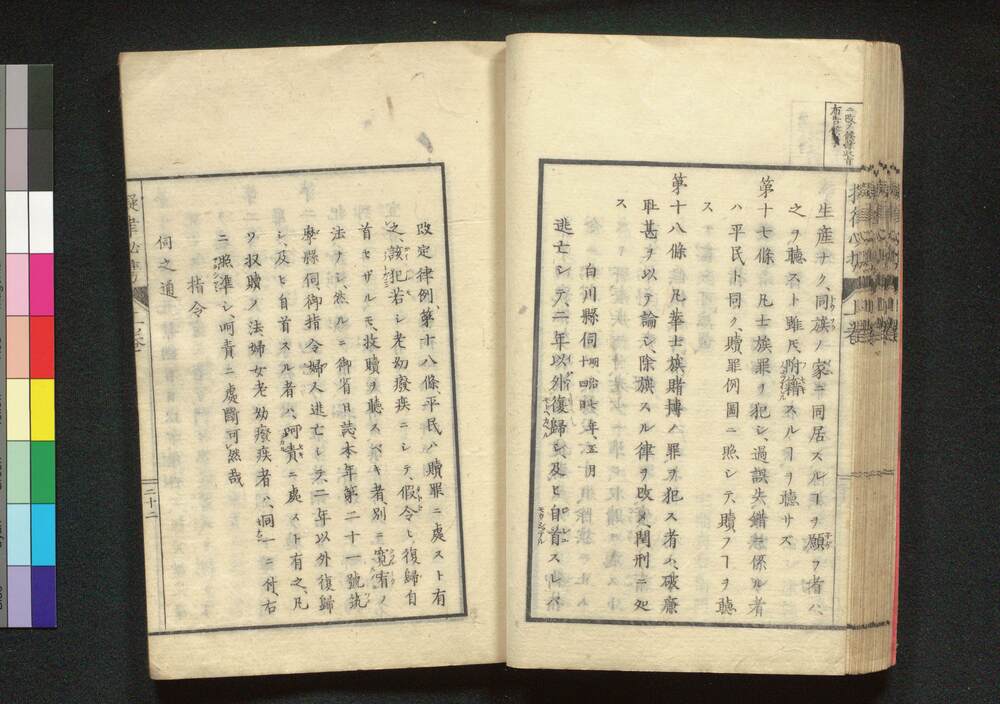 生産ナク、同族ノ家ニ同居スルヿヲ願フ者ハ、
之ヲ聽スト雖𪜈、附籍スルヿヲ聽サズ
第十七條 凡士族罪ヲ犯シ、過誤失錯ニ係ル者
ハ平民ト同ク、贖罪例圖ニ照シテ、贖フヿヲ聽
ス
第十八條 凡華士族賭博ノ罪ヲ犯ス者ハ、破廉
耻甚ヲ以テ論シ、除族スル律ヲ改メ、閏刑ニ処
ス
白川縣伺 明治七年、五月
十四日
逃亡シテ、二年以外、復歸シ、及ヒ自首スレバ
改定律例、第十八條、平民ハ贖罪ニ處スト有
之、該犯若シ老幼癈疾ニシテ、假令ヒ復歸自
首セザルモ、收贖ヲ聽スベキ者、別ニ寛宥ノ
法ナシ、然ルニ御省日誌、本年第二十一號筑
摩縣伺御指令、婦人逃亡シテ、二年以外復歸
シ、及ヒ自首スル者ハ、呵責ニ處スト有之、凡
ソ収贖ノ法、婦女老幼癈疾者ハ、同一ニ付、右
ニ照準シ、呵責ニ處斷可然哉
指令
伺之通
二十二